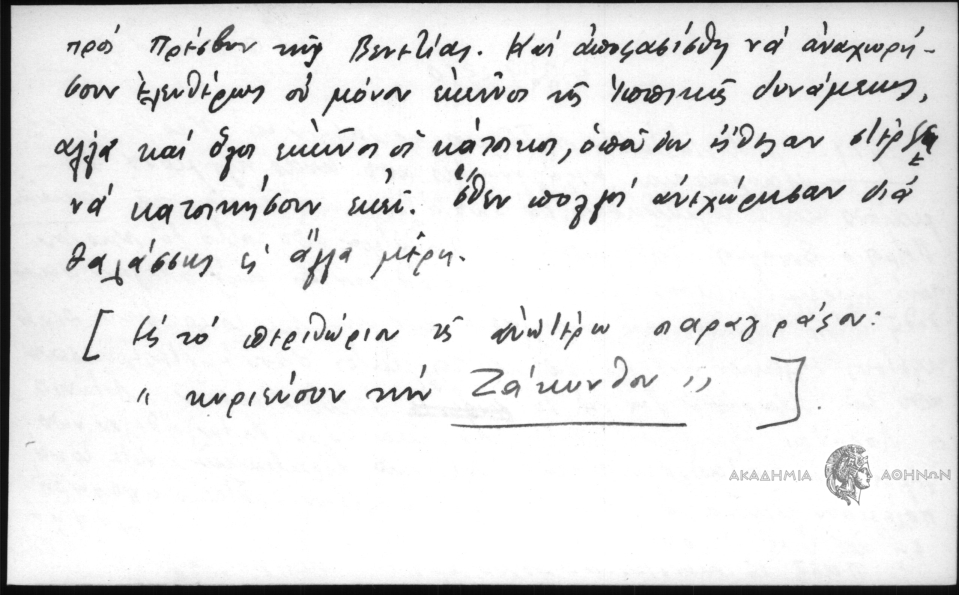 πρός πρέσβυν τῆς Βενετίας. Καί ἀπεφασίσθη νά ἀναχωρή-
σουν ἐλευθέρως οὐ μόνον ἐκεῖνοι τῆς Ἱππικῆς δυνάμεως,
ἀλλά καί ὅλοι ἐκεῖνοι οἱ κάτοικοι, ὁποῦ δέν ἤθελαν στέρξῃ
νά κατοικήσουν ἐκεῖ. ὅθεν πολλοί ἀνεχώρησαν διά
θαλάσσης εἰς ἄλλα μέρη.
[ Εἰς τό περιθώριον τῆς ἀνωτέρω παραγράφου:
" κυριεύουν τήν Ζάκυνθον " ].
ΑΚΑΔΗΜΙΑ ΑΘΗΝΩΝ